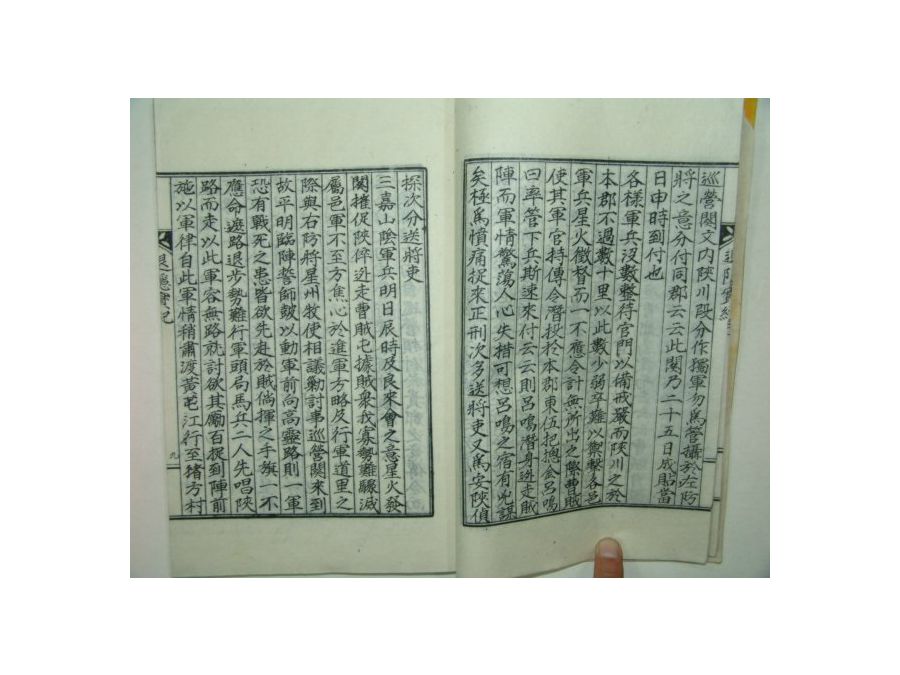 巡營關文內陜川段分作獨軍勿爲營攝於左防
將之意分付同郡云云此關乃二十五日成貼當
日申時到付也
各㨾軍兵沒數整待官門以備戒嚴而陜川之於
本郡不過數十里以此數少弱卒難以禦擊各邑
軍兵星火徵督而一不應令計無所出之際曹賊
使其軍官持傳令潛投於本郡東伍把摠令呂鳴
曰率管下兵斯速來付云云則呂鳴潛身迯走賊
陣而軍情驚蕩人心失措可想呂鳴之宿有兇謀
矣極爲憤痛捉來正刑次多送將吏又爲安陜偵
探次分送將吏
三嘉山陰軍兵明日辰時及良來會之意星火發
關摧促陜倅迯走曹賊屯據賊衆我寡勢難驟滅
屬邑軍不至方焦心於進軍方略及行軍道里之
際與右防將星州牧使相議勦討事巡營關來到
故平明臨陣誓師皷以動軍前向高靈路則一軍
恐有戰死之患皆欲先赴於賊倘揮之手旗一不
應命遮路退步勢難行軍頭局馬兵二人先唱陜
路而走以此軍容無路就討欲其勵百捉到陣前
施以軍律自此軍情稍肅渡黃芚江行至猪方村
退隱實記
九